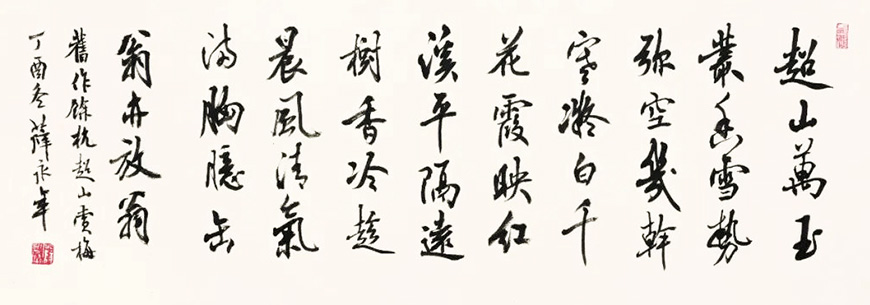 超山萬玉
叢香雪勢
弥空幾幹
寒凝白千
花霞映紅
溪平隔遠
樹香冷趁
晨風清氣
滿胸臆缶
翁亦放翁
舊作餘杭超山賞梅
丁酉冬薛永年